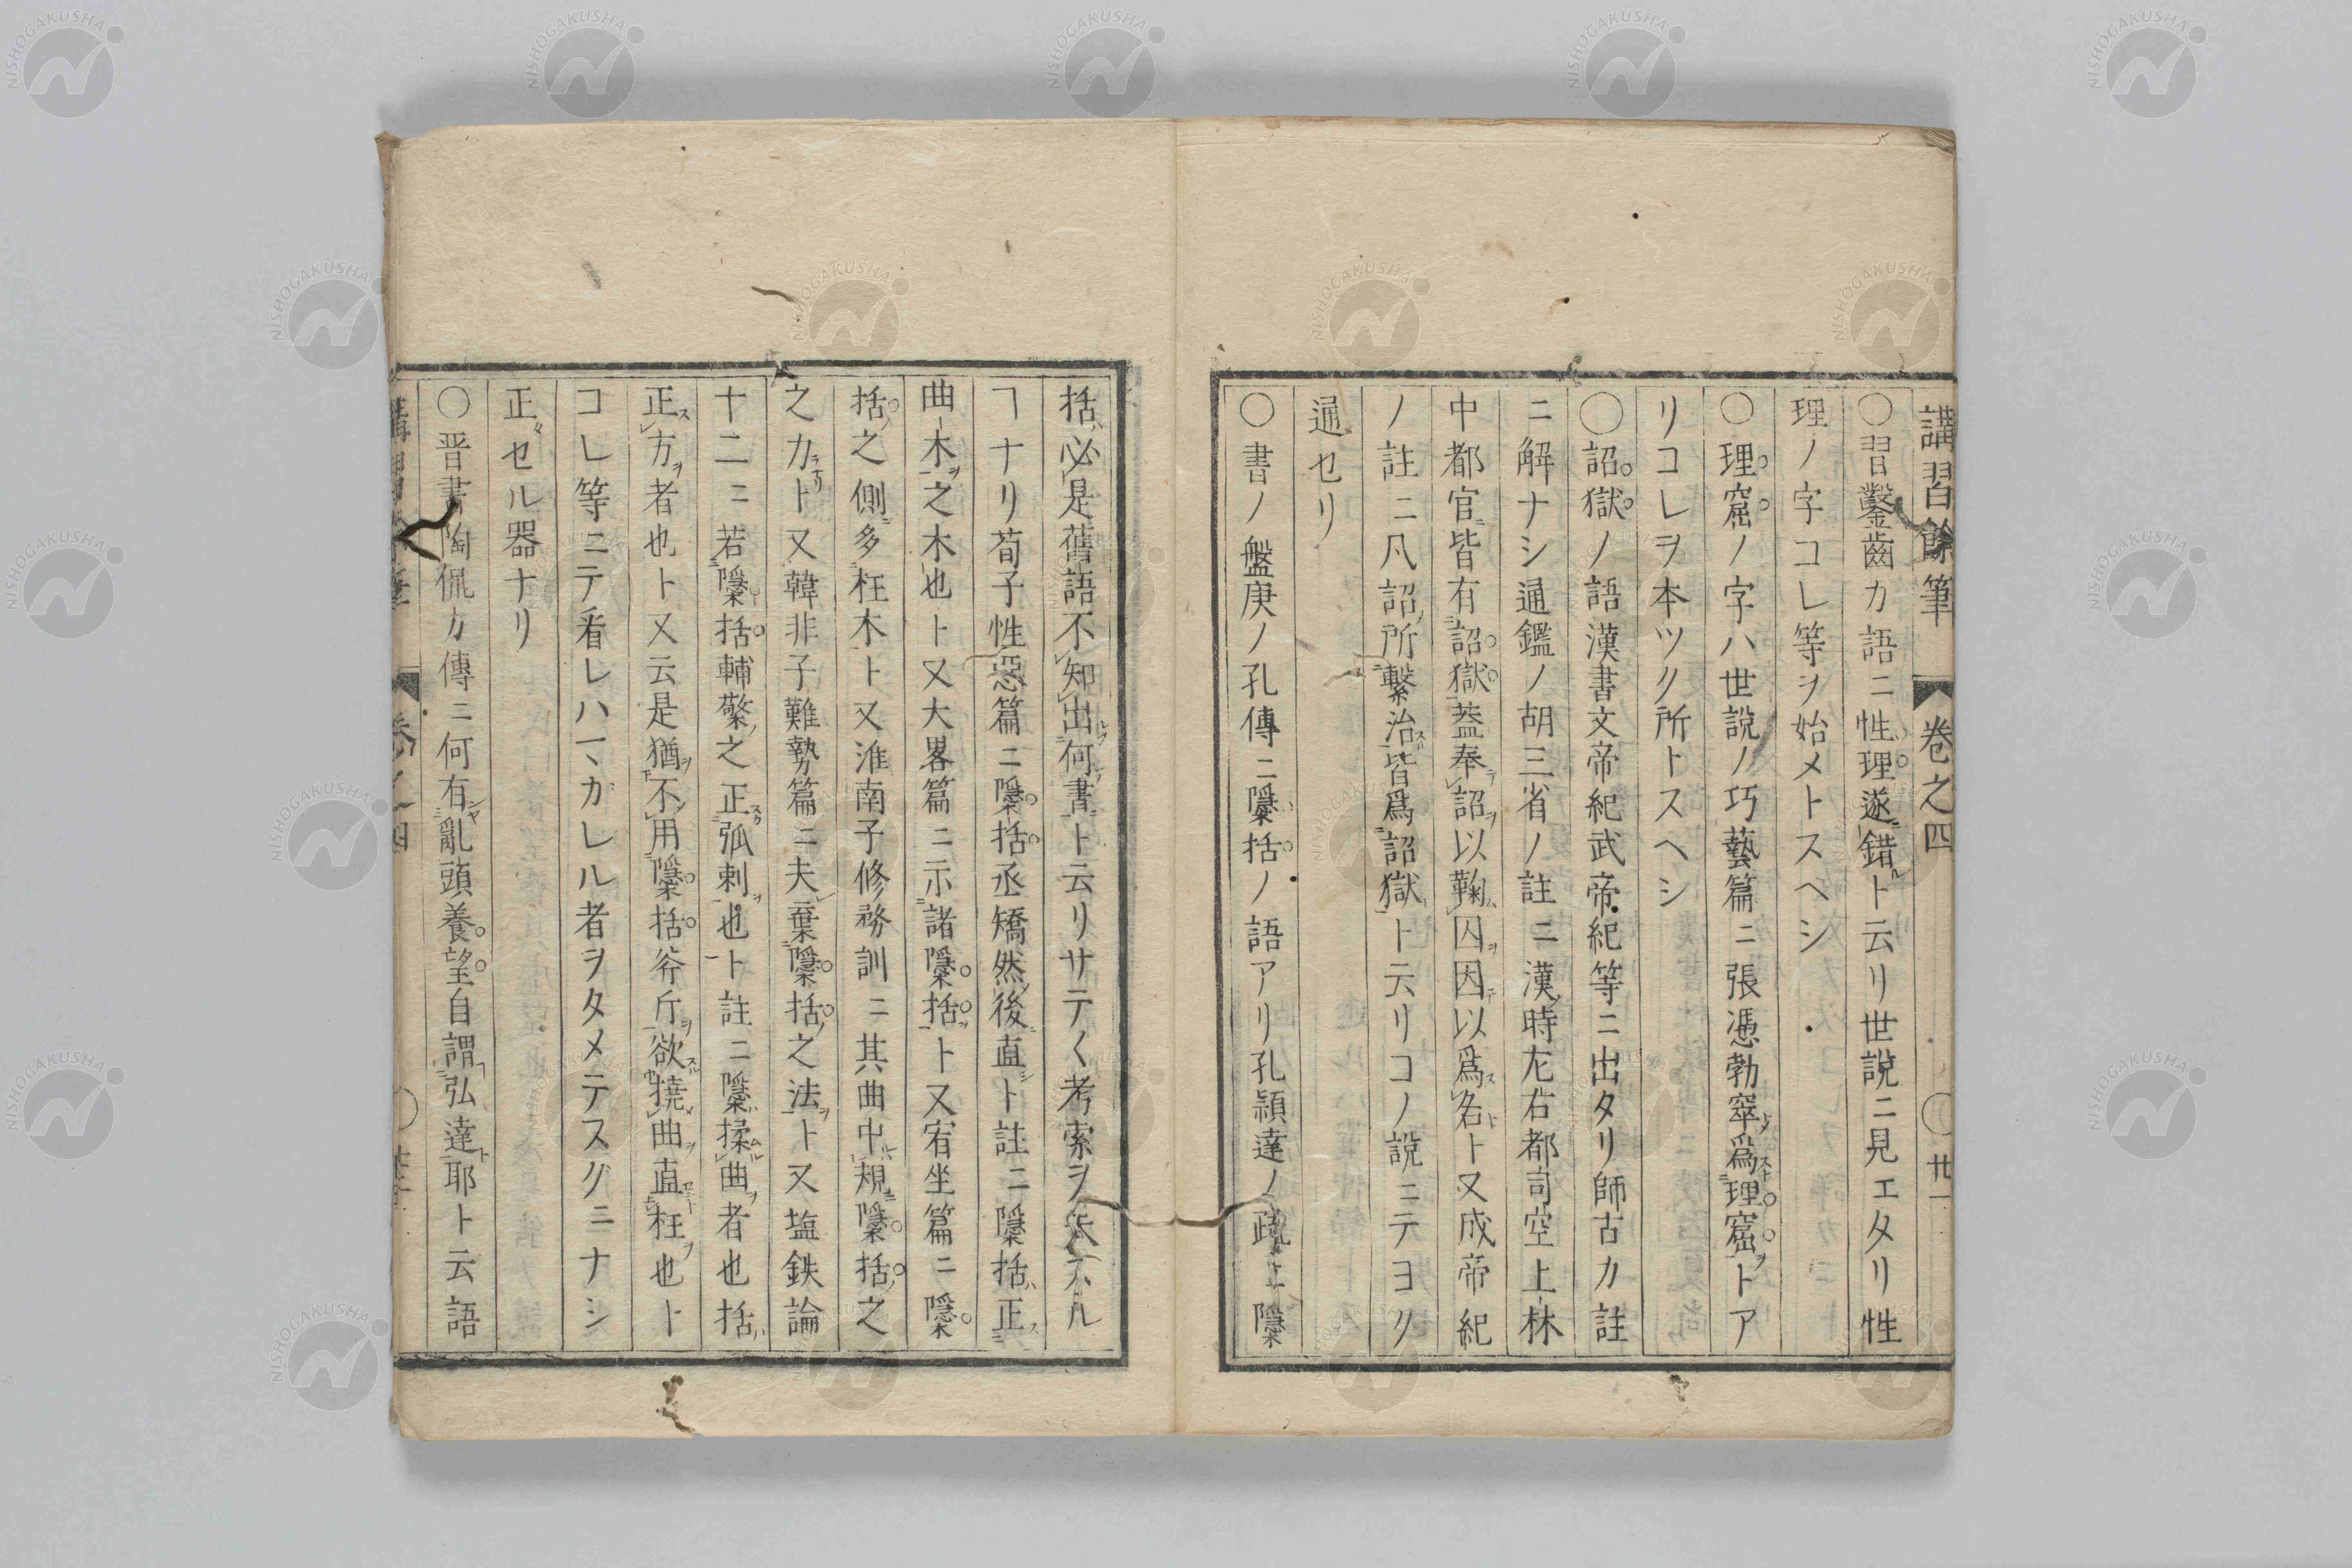 講習餘筆 卷之四 〇廿一
〇習鑿齒カ語ニ性理遂錯ト云リ世說ニ見エタリ性
理ノ字コレ等ヲ始メトスヘシ
〇理窟ノ字ハ世說ノ巧藝篇ニ張憑勃窣爲理窟トア
リコレヲ本ツク所トスヘシ
〇詔獄ノ語漢書文帝紀武帝紀等ニ出タリ師古カ註
ニ解ナシ通鑑ノ胡三省ノ註ニ漢時左右都司空上林
中都官皆有詔獄蓋奉詔以鞠囚因以爲名ト又成帝紀
ノ註ニ凡詔所繫治皆爲詔獄ト云リコノ說ニテヨク
通セリ
〇書ノ盤庚ノ孔傳ニ隱括ノ語アリ孔穎達ノ疏ニ隱
括必是舊語不知出何書ト云リサテ〱考索ヲ失スル
ヿナリ荀子性惡篇ニ檃括烝矯然後直ト註ニ檃括正
曲木之木也ト又大畧篇ニ示諸檃括ト又宥坐篇ニ檃
括之側多枉木ト又淮南子修務訓ニ其曲中規檃括之
之力ト又韓非子難勢篇ニ夫棄檃括之法ト又塩鉄論
十二ニ若檃括輔檠之正弧剌也ト註ニ檃揉曲者也括
正方者也ト又云是猶不用檃括斧斤欲撓曲直枉也ト
コレ等ニテ看レハマガレル者ヲタメテスグニナシ
正セル器ナリ
〇晋書陶侃カ傳ニ何有亂頭養望自謂弘達耶ト云語